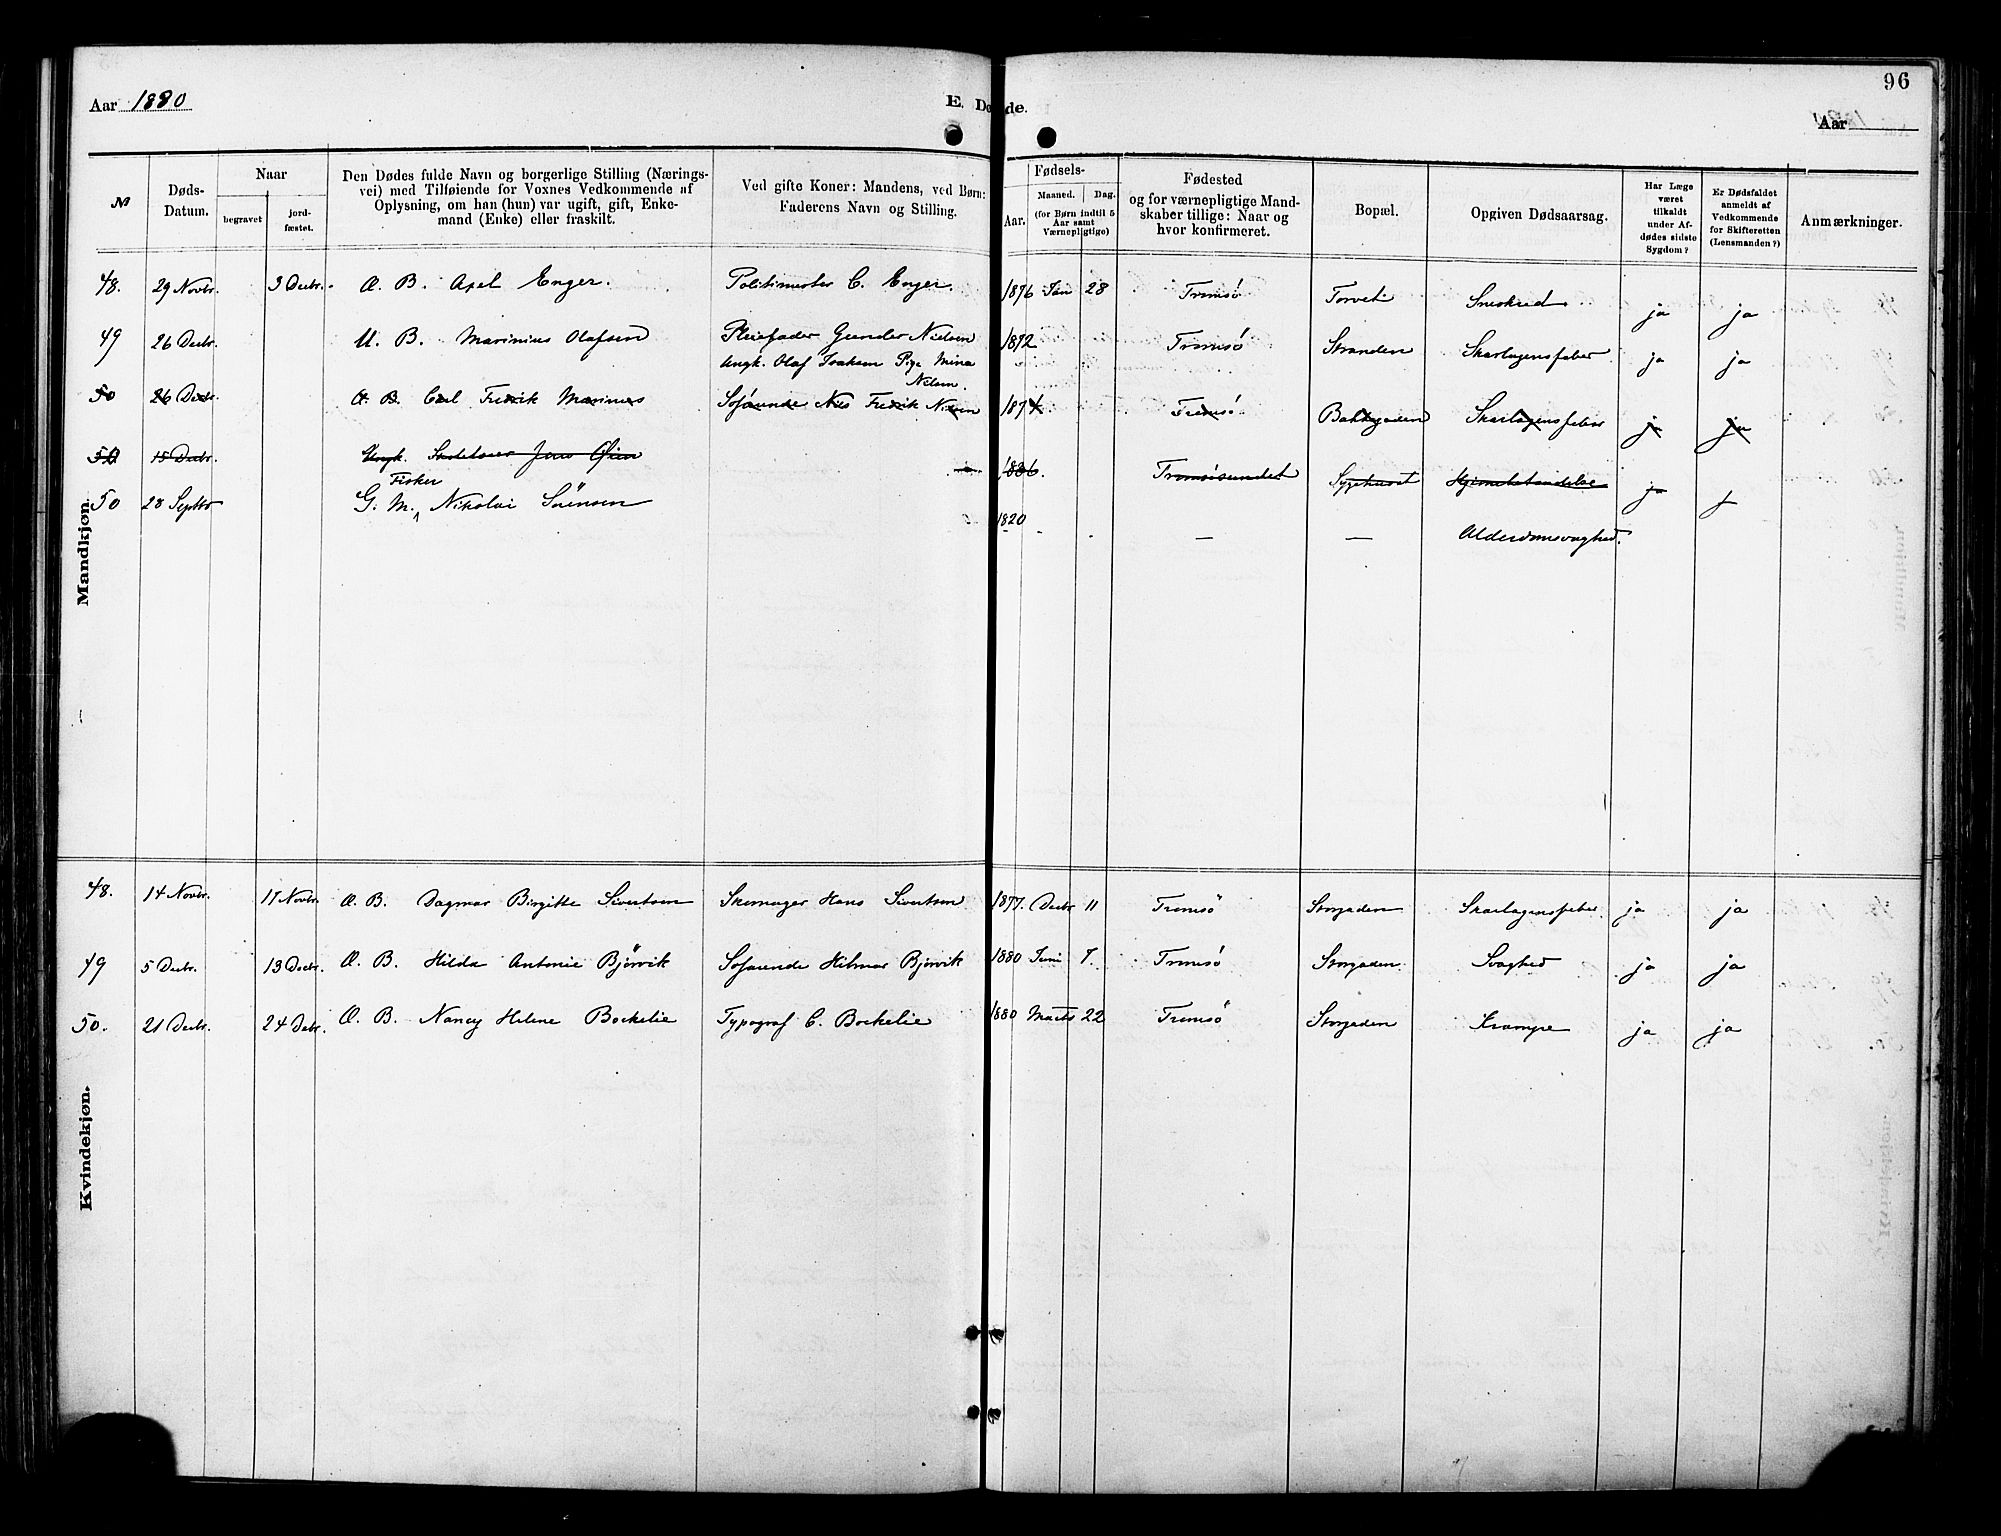 96
Aar 1880
E. Døde.
Aar
№
Døds-Datum.
Naar
begravet
jord-fæstet.
Den Dødes fulde Navn og borgerlige Stilling (Nærings-
vei) med Tilføiende for Voxnes Vedkommende af
Oplysning, om han (hun) var ugift, gift, Enke-
mand (Enke) eller fraskilt.
Ved gifte Koner: Mandens, ved Børn:
Faderens Navn og Stilling.
Fødsels-
Aar.
Maaned. Dag.
(for Børn indtil 5
Aar samt
Værnepligtige)
Fødested
og for værnepligtige Mand-
skaber tillige: Naar og
hvor konfirmeret.
Bopæl.
Opgiven Dødsaarsag.
Har Læge
været
tilkaldt
under Af-
dødes sidste
Sygdom?
Er Dødsfaldet
anmeldt af
Vedkommende
for Skifteretten
(Lensmanden?)
Anmærkninger.
Mandkjøn.
48. 29 Novbr. 3 Decbr. Æ. B. Axel Enger. Politimester C. Enger. 1876 Jan 28 Tromsø Torvet Sneskred ja ja
49 26 Decbr. U. B. Marinius Olafsen Pleiefader Gunder Nielsen 1872 Tromsø Stranden Skarlagensfeber ja ja
Ungk. Olaf Joakim Pige Mina
Nilsen.
50 26 Decbr Æ. B. Carl Fredrik Marinius Sofarende Nils Fredrik Nilsen 1874 Tromsø Bakkegaden Skarlagensfeber ja ja
50 15 Decbr. Ungk. Jens Øien 1836. Tromsøsundet Sygehuset ja j
Fisker
50 28 Septbr G. M. Nikolai Sørensen 1820 - - — — Alderdomsvaghed.
Kvindekjøn.
48. 14 Novbr. 17 Novbr. Æ. B. Dagmar Birgitte Sivertsen Skomager Hans Sivertsen 1877. Decbr 11 Tromsø Storgaden Skarlagensfeber ja ja
49 5 Decbr. 13 Decbr. Æ. B. Hilda Antonie Bjørvik Sofarende Hilmar Bjørvik 1880 Juni 7. Tromsø Storgaden Svaghed ja ja
50. 21 Decbr. 24 Debr. Æ. B. Nancy Helene Bockelie Typograf C. Bockelie 1880 Marts 22 Tromsø Storgaden Krampe ja ja